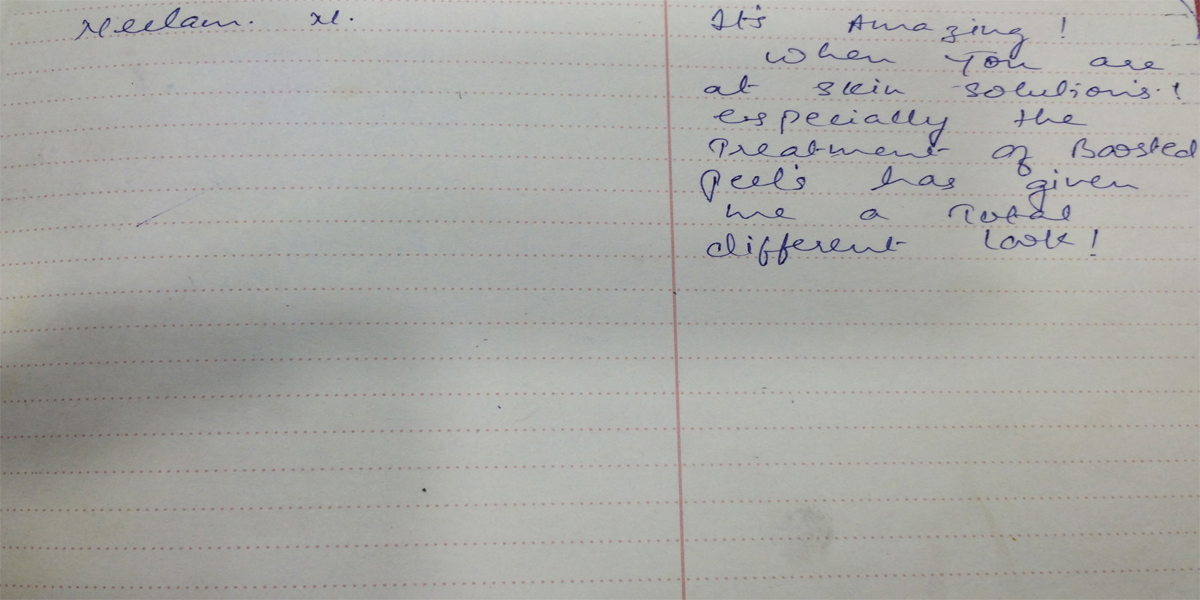 Neelam. N.
It's Amazing!
When You are
at skin solution's!
especially the
Treatment of Boosted
Peel's has given
me a Total
different look!